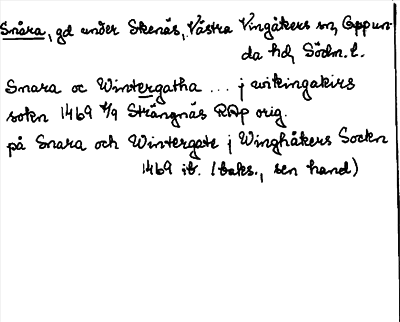 Snåra, gd under Skenäs, Västra Vingåkers sn, Oppun-
da hd, Södm. l.
Snara oc Wintergatha ... j wikingakirs
sokn 1469 4/9 Strängnäs RAp orig.
på Snara och Wintergate j Winghåkers Sockn
1469 ib. (baks., sen hand)